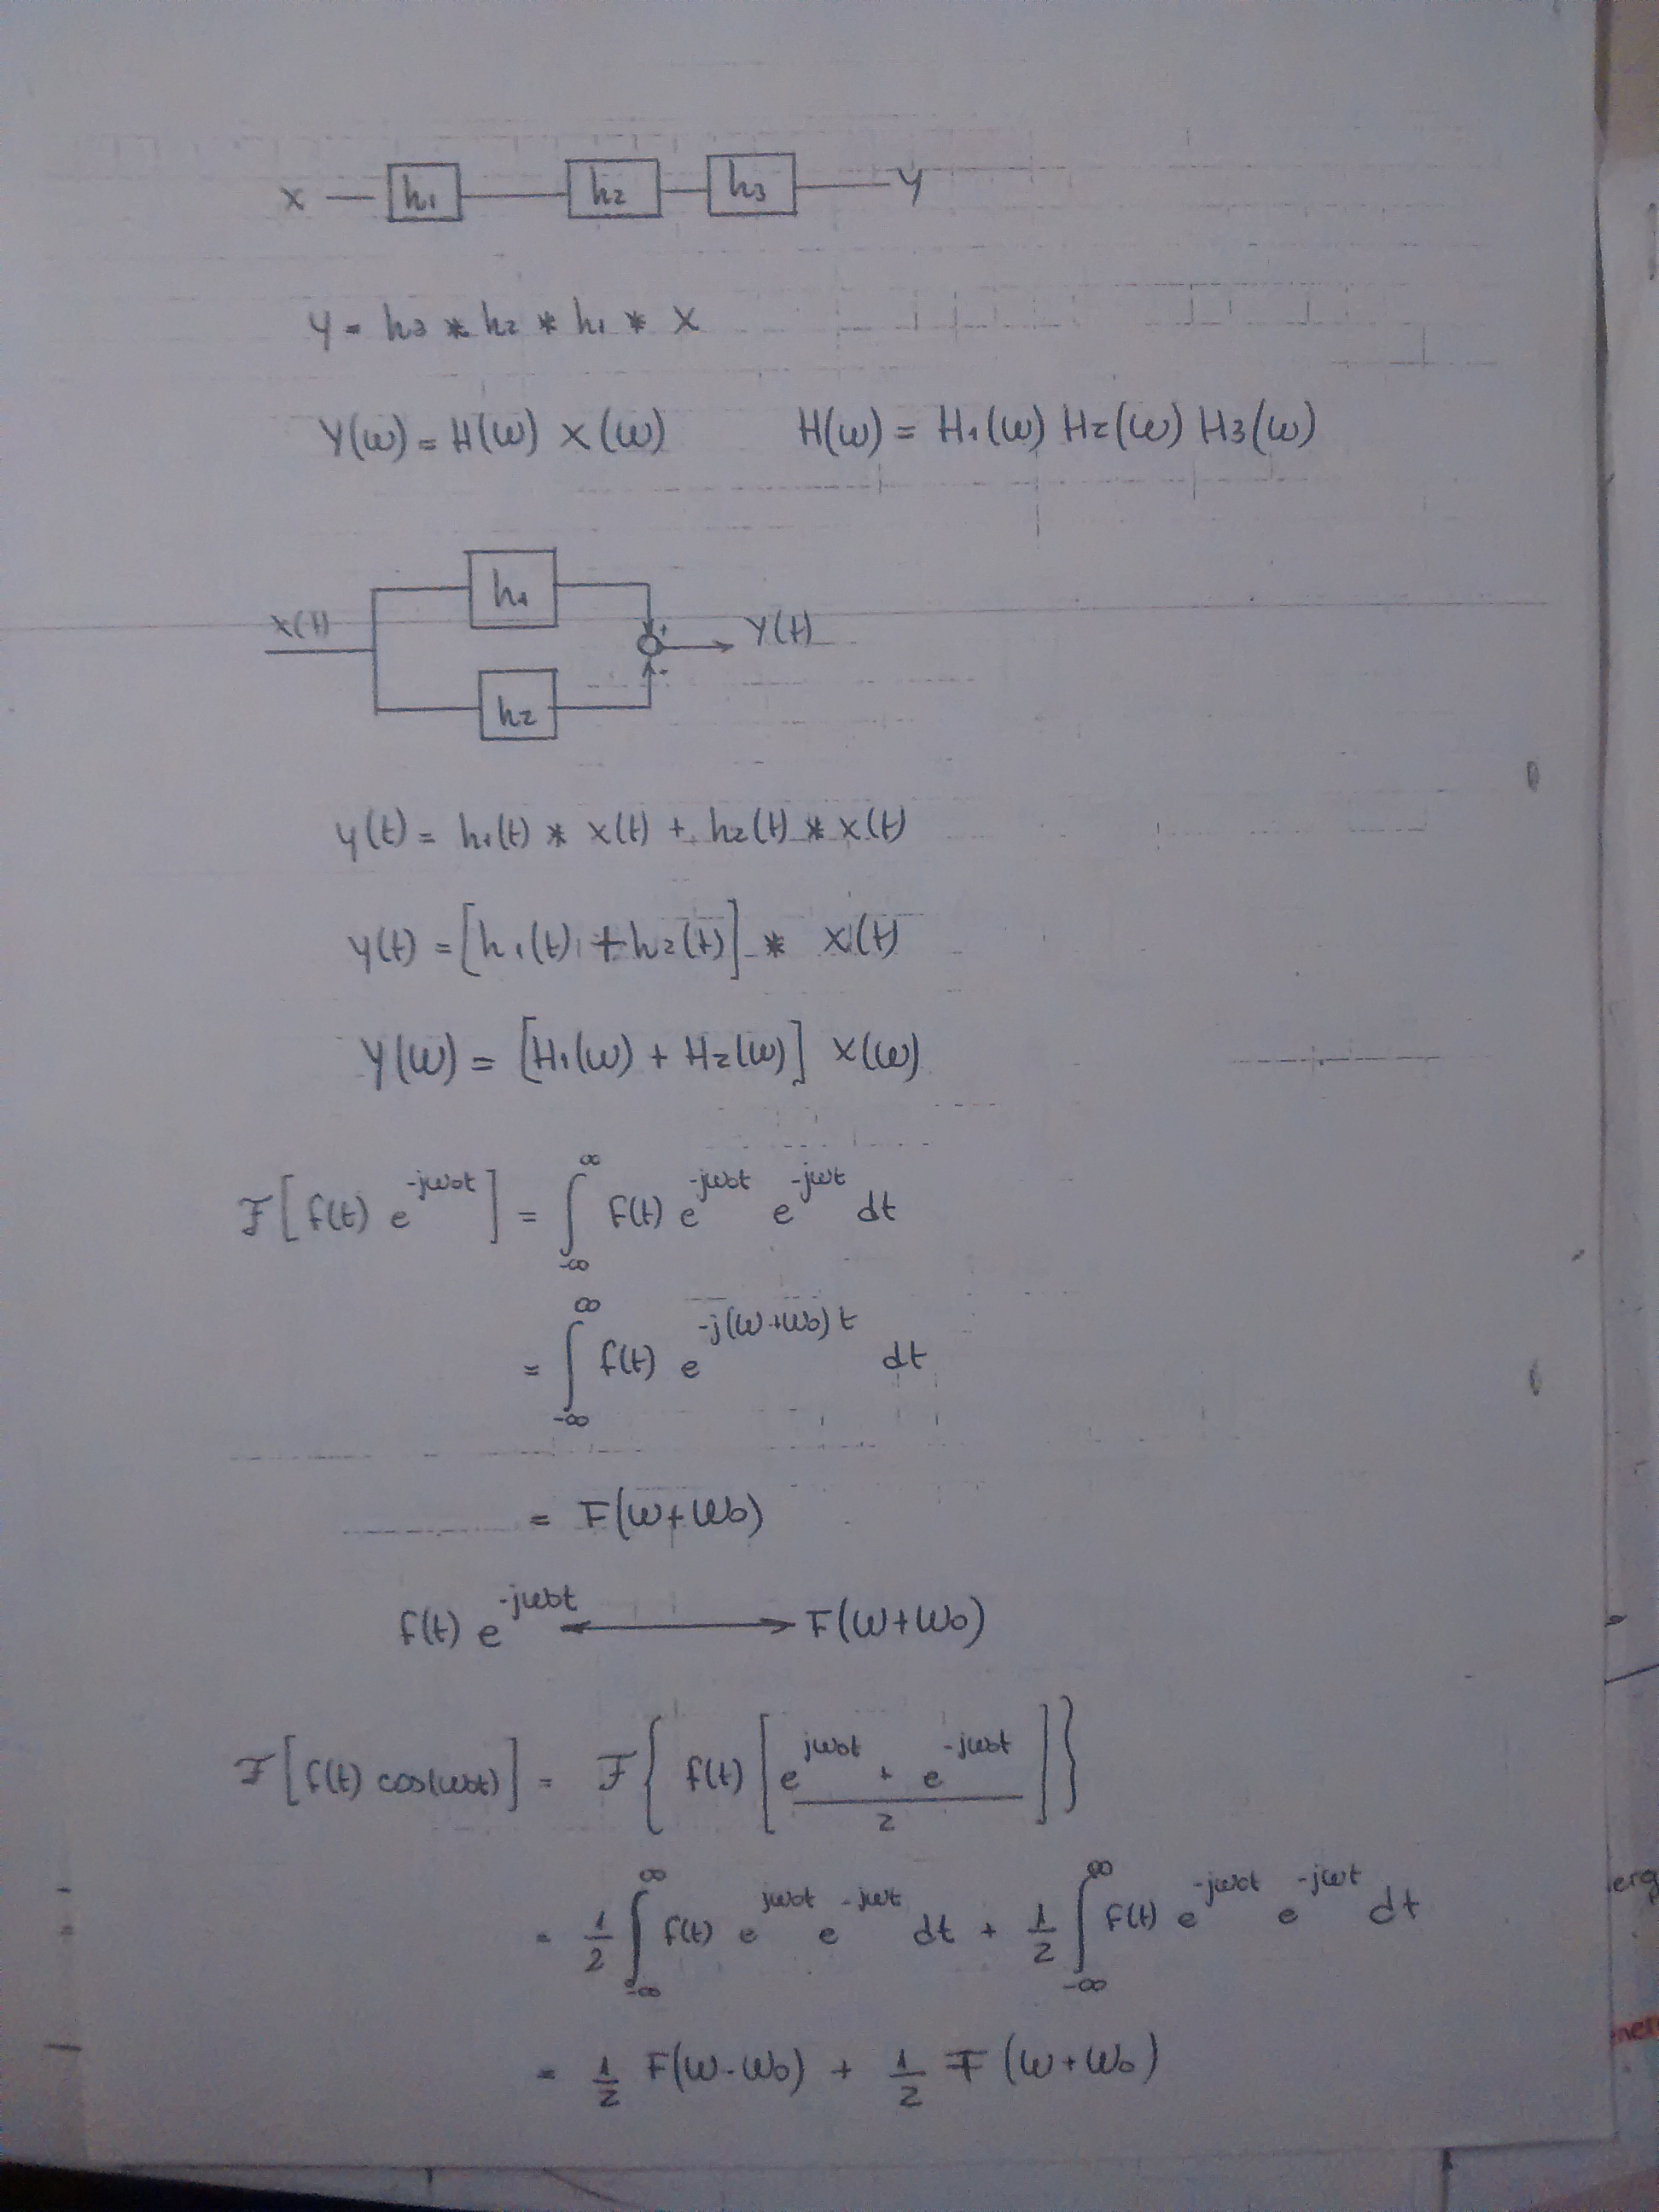 x h1 h2 h3 y
y = h3 * h2 * h1 * x
Y(ω) = H(ω) X(ω) H(ω) = H1(ω) H2(ω) H3(ω)
h1
x(t) + y(t)
-
h2
y(t) = h1(t) * x(t) + h2(t) * x(t)
y(t) = [h1(t) + h2(t)] * x(t)
Y(ω) = [H1(ω) + H2(ω)] X(ω)
ℱ[f(t) e^{-jω0t}] = ∫_{-∞}^{∞} f(t) e^{-jω0t} e^{-jωt} dt
= ∫_{-∞}^{∞} f(t) e^{-j(ω+ω0)t} dt
= F(ω+ω0)
f(t) e^{-jω0t} ⟷ F(ω+ω0)
ℱ[f(t) cos(ω0t)] = ℱ{ f(t) [ (e^{jω0t} + e^{-jω0t}) / 2 ] }
= 1/2 ∫_{-∞}^{∞} f(t) e^{jω0t} e^{-jωt} dt + 1/2 ∫_{-∞}^{∞} f(t) e^{-jω0t} e^{-jωt} dt
= 1/2 F(ω-ω0) + 1/2 F(ω+ω0)